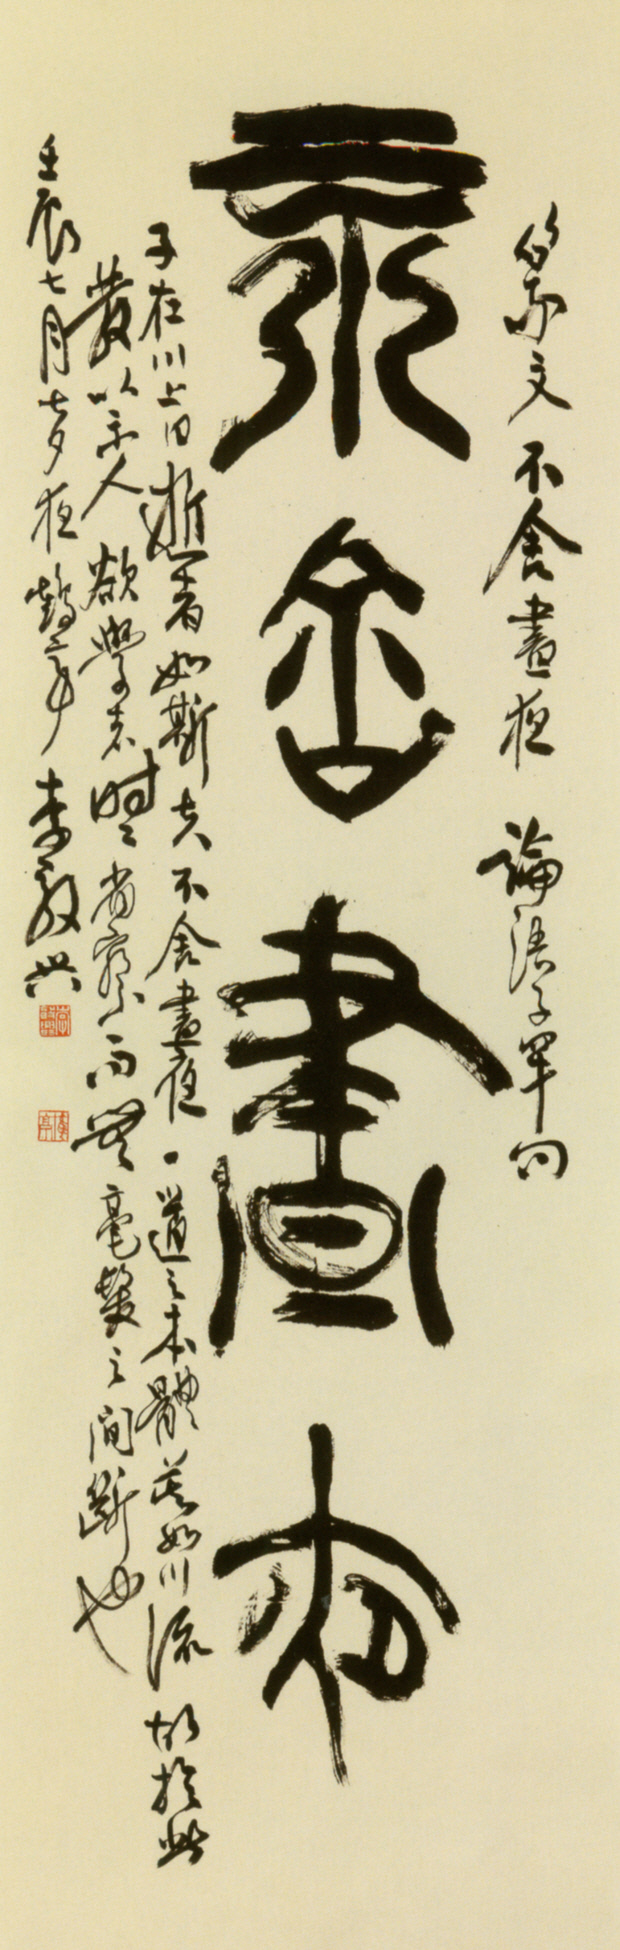 篆文 不舍晝夜 論語子罕句
不舍晝夜
子在川上曰逝者如斯夫不舍晝夜 道之本體 如川流 故於此
發以示人 欲學者時時省察而無毫髮之間斷也
壬辰七月七夕夜 李敭共